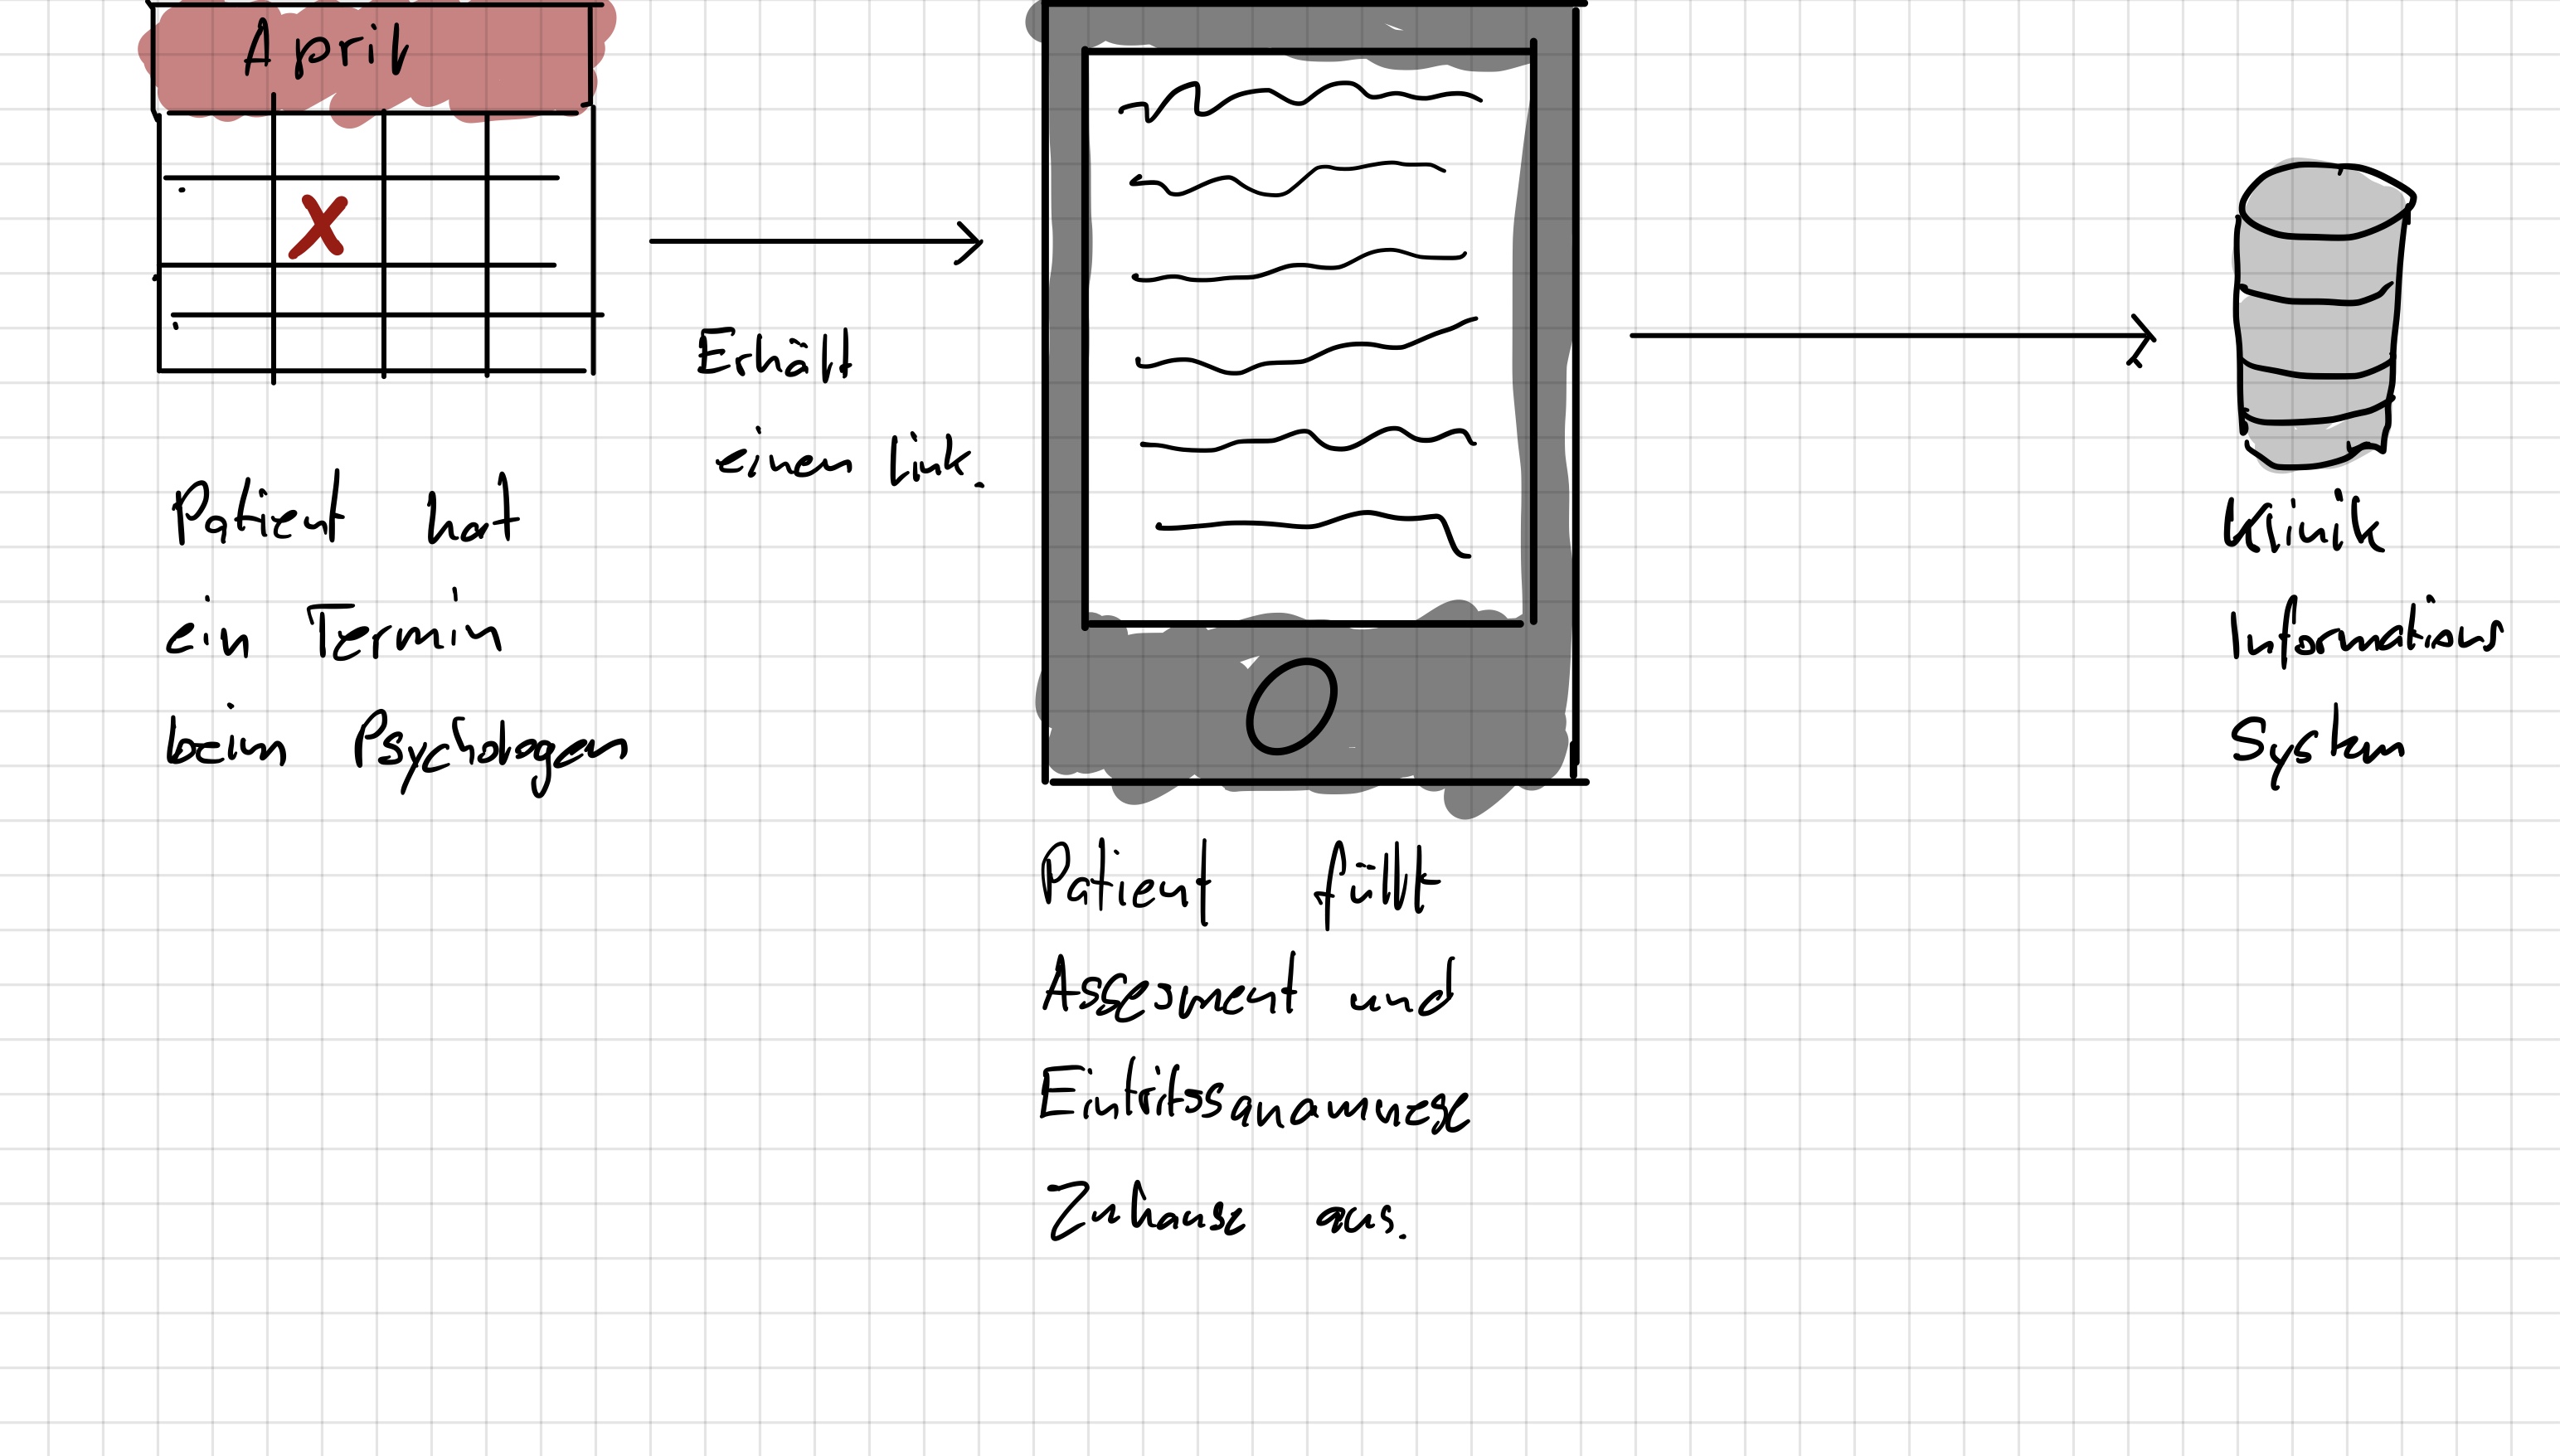 April
Patient hat
ein Termin
beim Psychologen
Erhält
einen Link.
Patient füllt
Assesment und
Eintritssanamnese
Zuhause aus.
Klinik
Informations
System